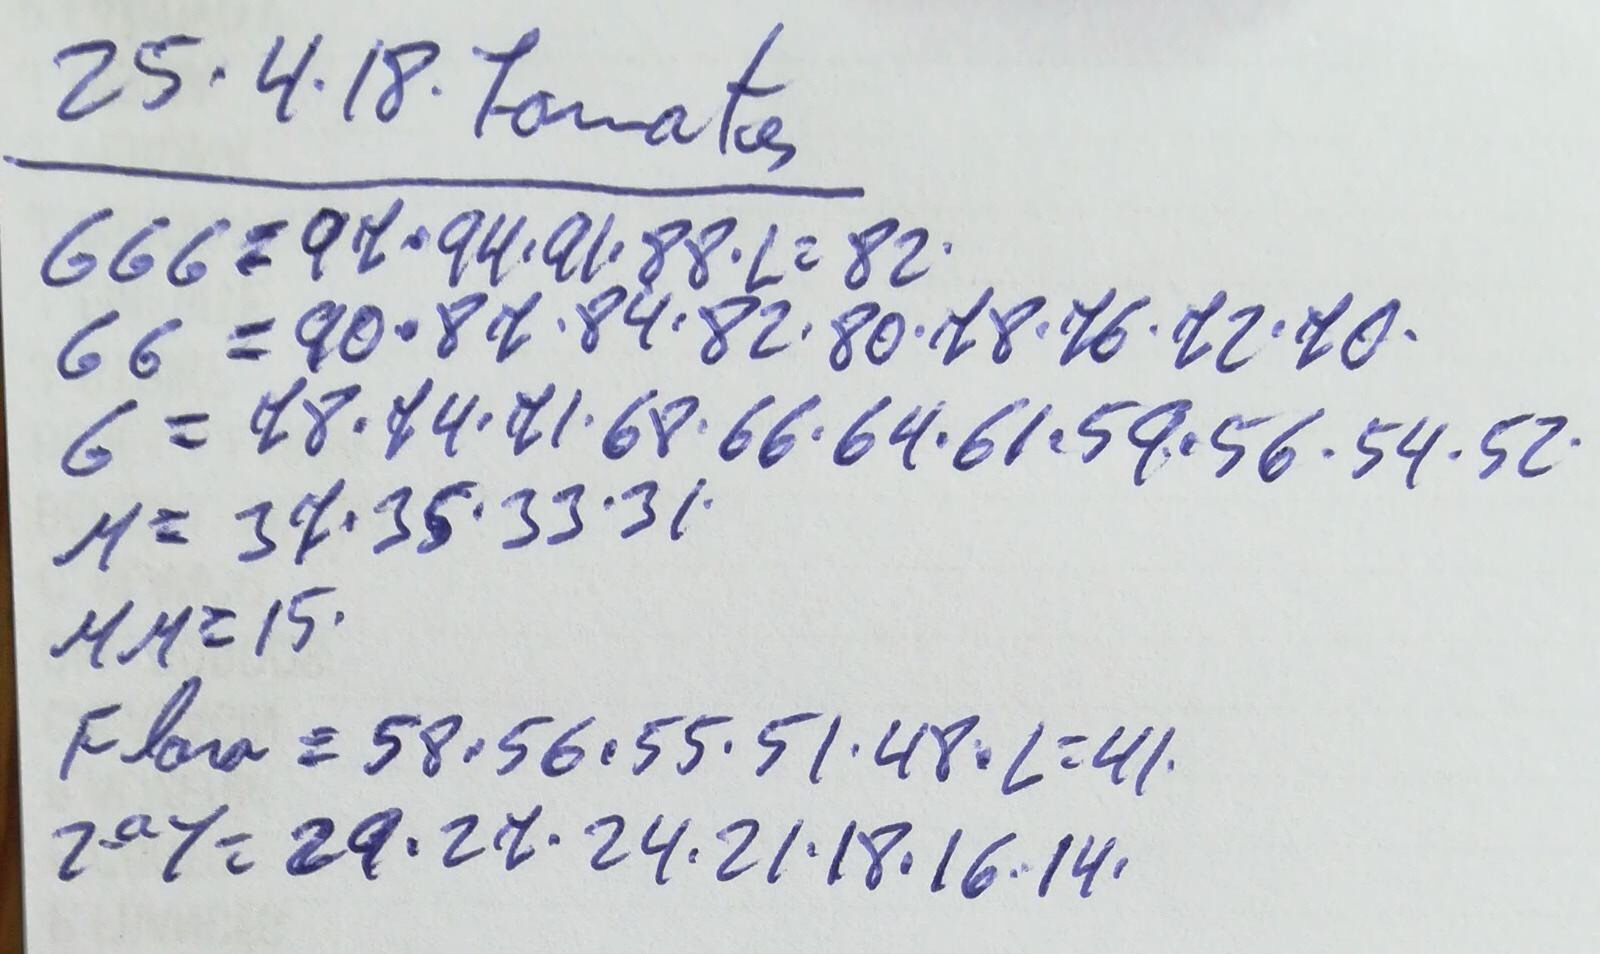 25.4.18. Tomates
GGG = 97.94.91.88.L=82.
GG = 90.87.84.82.80.78.76.72.70.
G = 78.74.71.68.66.64.61.59.56.54.52.
M = 37.35.33.31.
MM=15.
Flora = 58.56.55.51.48.L=41.
2ªY= 29.27.24.21.18.16.14.